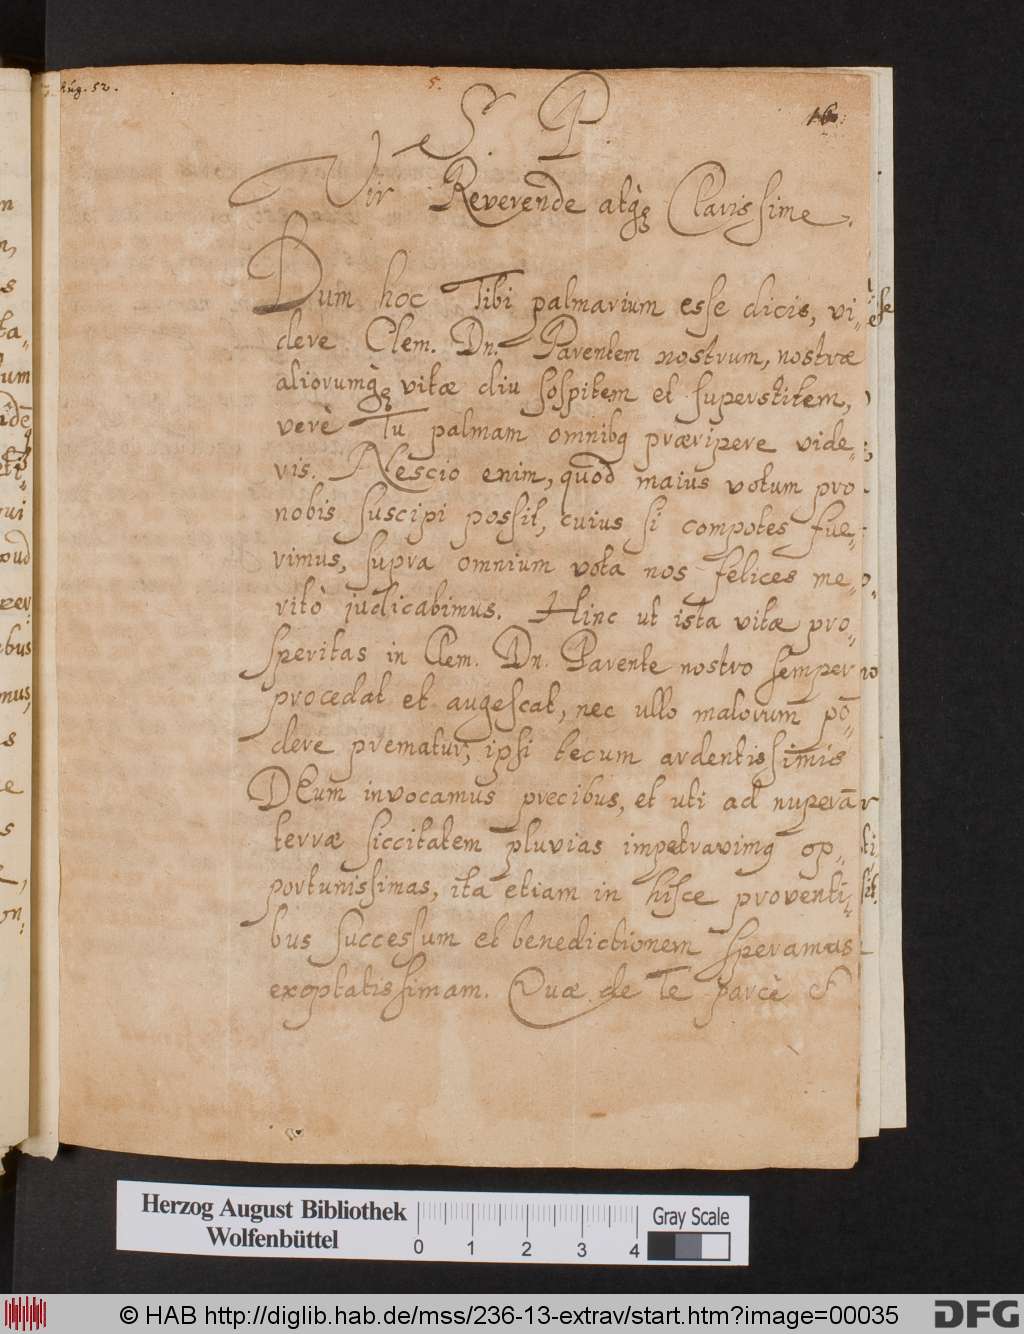 Aug. 52.
5.
16
S. P.
Vir Reverende atq̀₃ Clarissime.
Dum hoc Tibi palmarium esse dicis, vi-
dere Clem. Dn. Parentem nostrum, nostræ
aliorumq̀₃ vitæ diu sospitem et superstitem,
verè Tu palmam omnibq præripere vide-
ris. Nescio enim, quod maius votum pro
nobis suscipi possit, cuius si compotes fue-
rimus, supra omnium vota nos felices me-
ritò judicabimus. Hinc ut ista vitæ pro-
speritas in Clem. Dn. Parente nostro semper
procedat et augescat, nec ullo malorum põ-
dere prematur, ipsi tecum ardentissimis
DEum invocamus precibus, et uti ad nuperã
terræ siccitatem pluvias impetravimq op-
portunissimas, ita etiam in hisce proventi-
bus successum et benedictionem speramus
exoptatissimam. Quæ de Te parcè &
Herzog August Bibliothek
Wolfenbüttel
0 1 2 3 4
Gray Scale
© HAB http://diglib.hab.de/mss/236-13-extrav/start.htm?image=00035
DFG